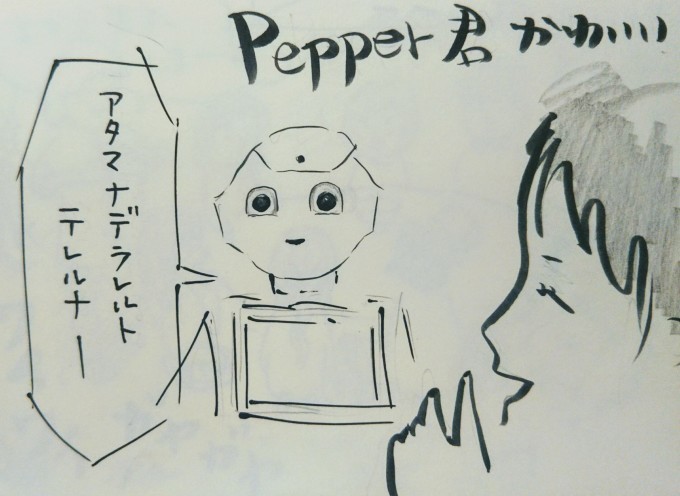 Pepper君 かわいい
アタマナデラレルト
テレルナー